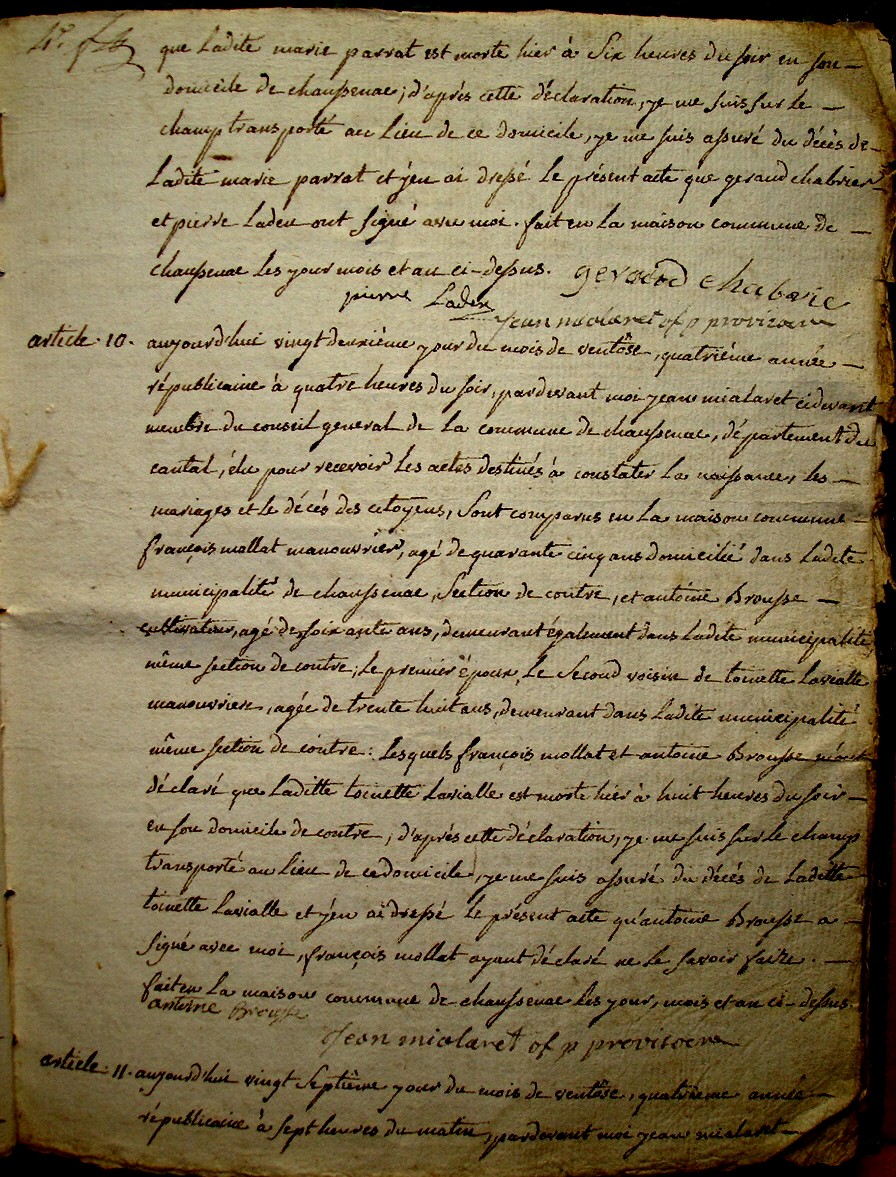 4e
que Ladite marie parrat est morte hier à Six heures du soir en son
domicile de chaussenac; d'après cette déclaration, je me suis sur le
champ transporté au Lieu de ce domicile, je me suis assuré du décès de
Ladite marie parrat et j'en ai dressé Le présent acte que geraud chabrier
et pierre Laden ont signé avec moi. fait en La maison commune de
chaussenac les jour mois et an ci-dessus. gerarod chabrie
pierre Laden
jean mialaret of p provisoire
article. 10. aujourd'hui vingt deuxième jour du mois de ventôse, quatrième année
républicaine à quatre heures du soir, pardevant moi jean mialaret cidevant
membre du conseil general de La commune de chaussenac, département du
cantal, élu pour recevoir Les actes destinés à constater La naissance, les
mariages et Le décès des citoyens, Sont comparus en La maison commune
françois mollat manouvrier, agé de quarante cinq ans domicilié dans Ladite
municipalité de chaussenac, Section de contre, et antoine Brousse
cultivateur, agé de soixante ans, demeurant également dans Ladite municipalité,
même section de contre; Le premier époux, Le Second voisin de toinette Lavialle
manouvriere, agée de trente huit ans, demeurant dans Ladite municipalité
même section de contre: Lesquels françois mollat et antoine Brousse m'ont
déclaré que Laditte toinette Lavialle est morte hier à huit heures du Soir
en son domicile de contre, d'après cette déclaration, je me suis sur Le champ
transporté au Lieu de ce domicile, je me suis assuré du décès de Laditte
toinette Lavialle et j'en ai dressé Le présent acte qu'antoine Brousse a
signé avec moi, françois mollat ayant déclaré ne Le savoir faire.
fait en La maison commune de chaussenac Les jour, mois et an ci-dessus.
antoine Brousse
Jean mialaret of p provisoire
article. 11. aujourd'hui vingt Septième jour du mois de ventôse, quatrieme année
républicaine à sept heures du matin, pardevant moi jean mialaret